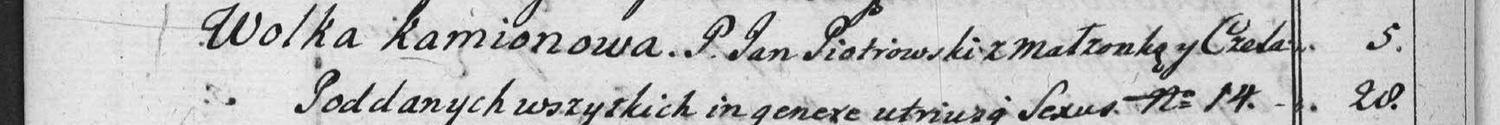 Wolka Kamionowa. P. Jan Piotrowski z małzonką y Czela: 5.
Poddanych wszystkich in genere utriusq Sexus. No 14. 28.